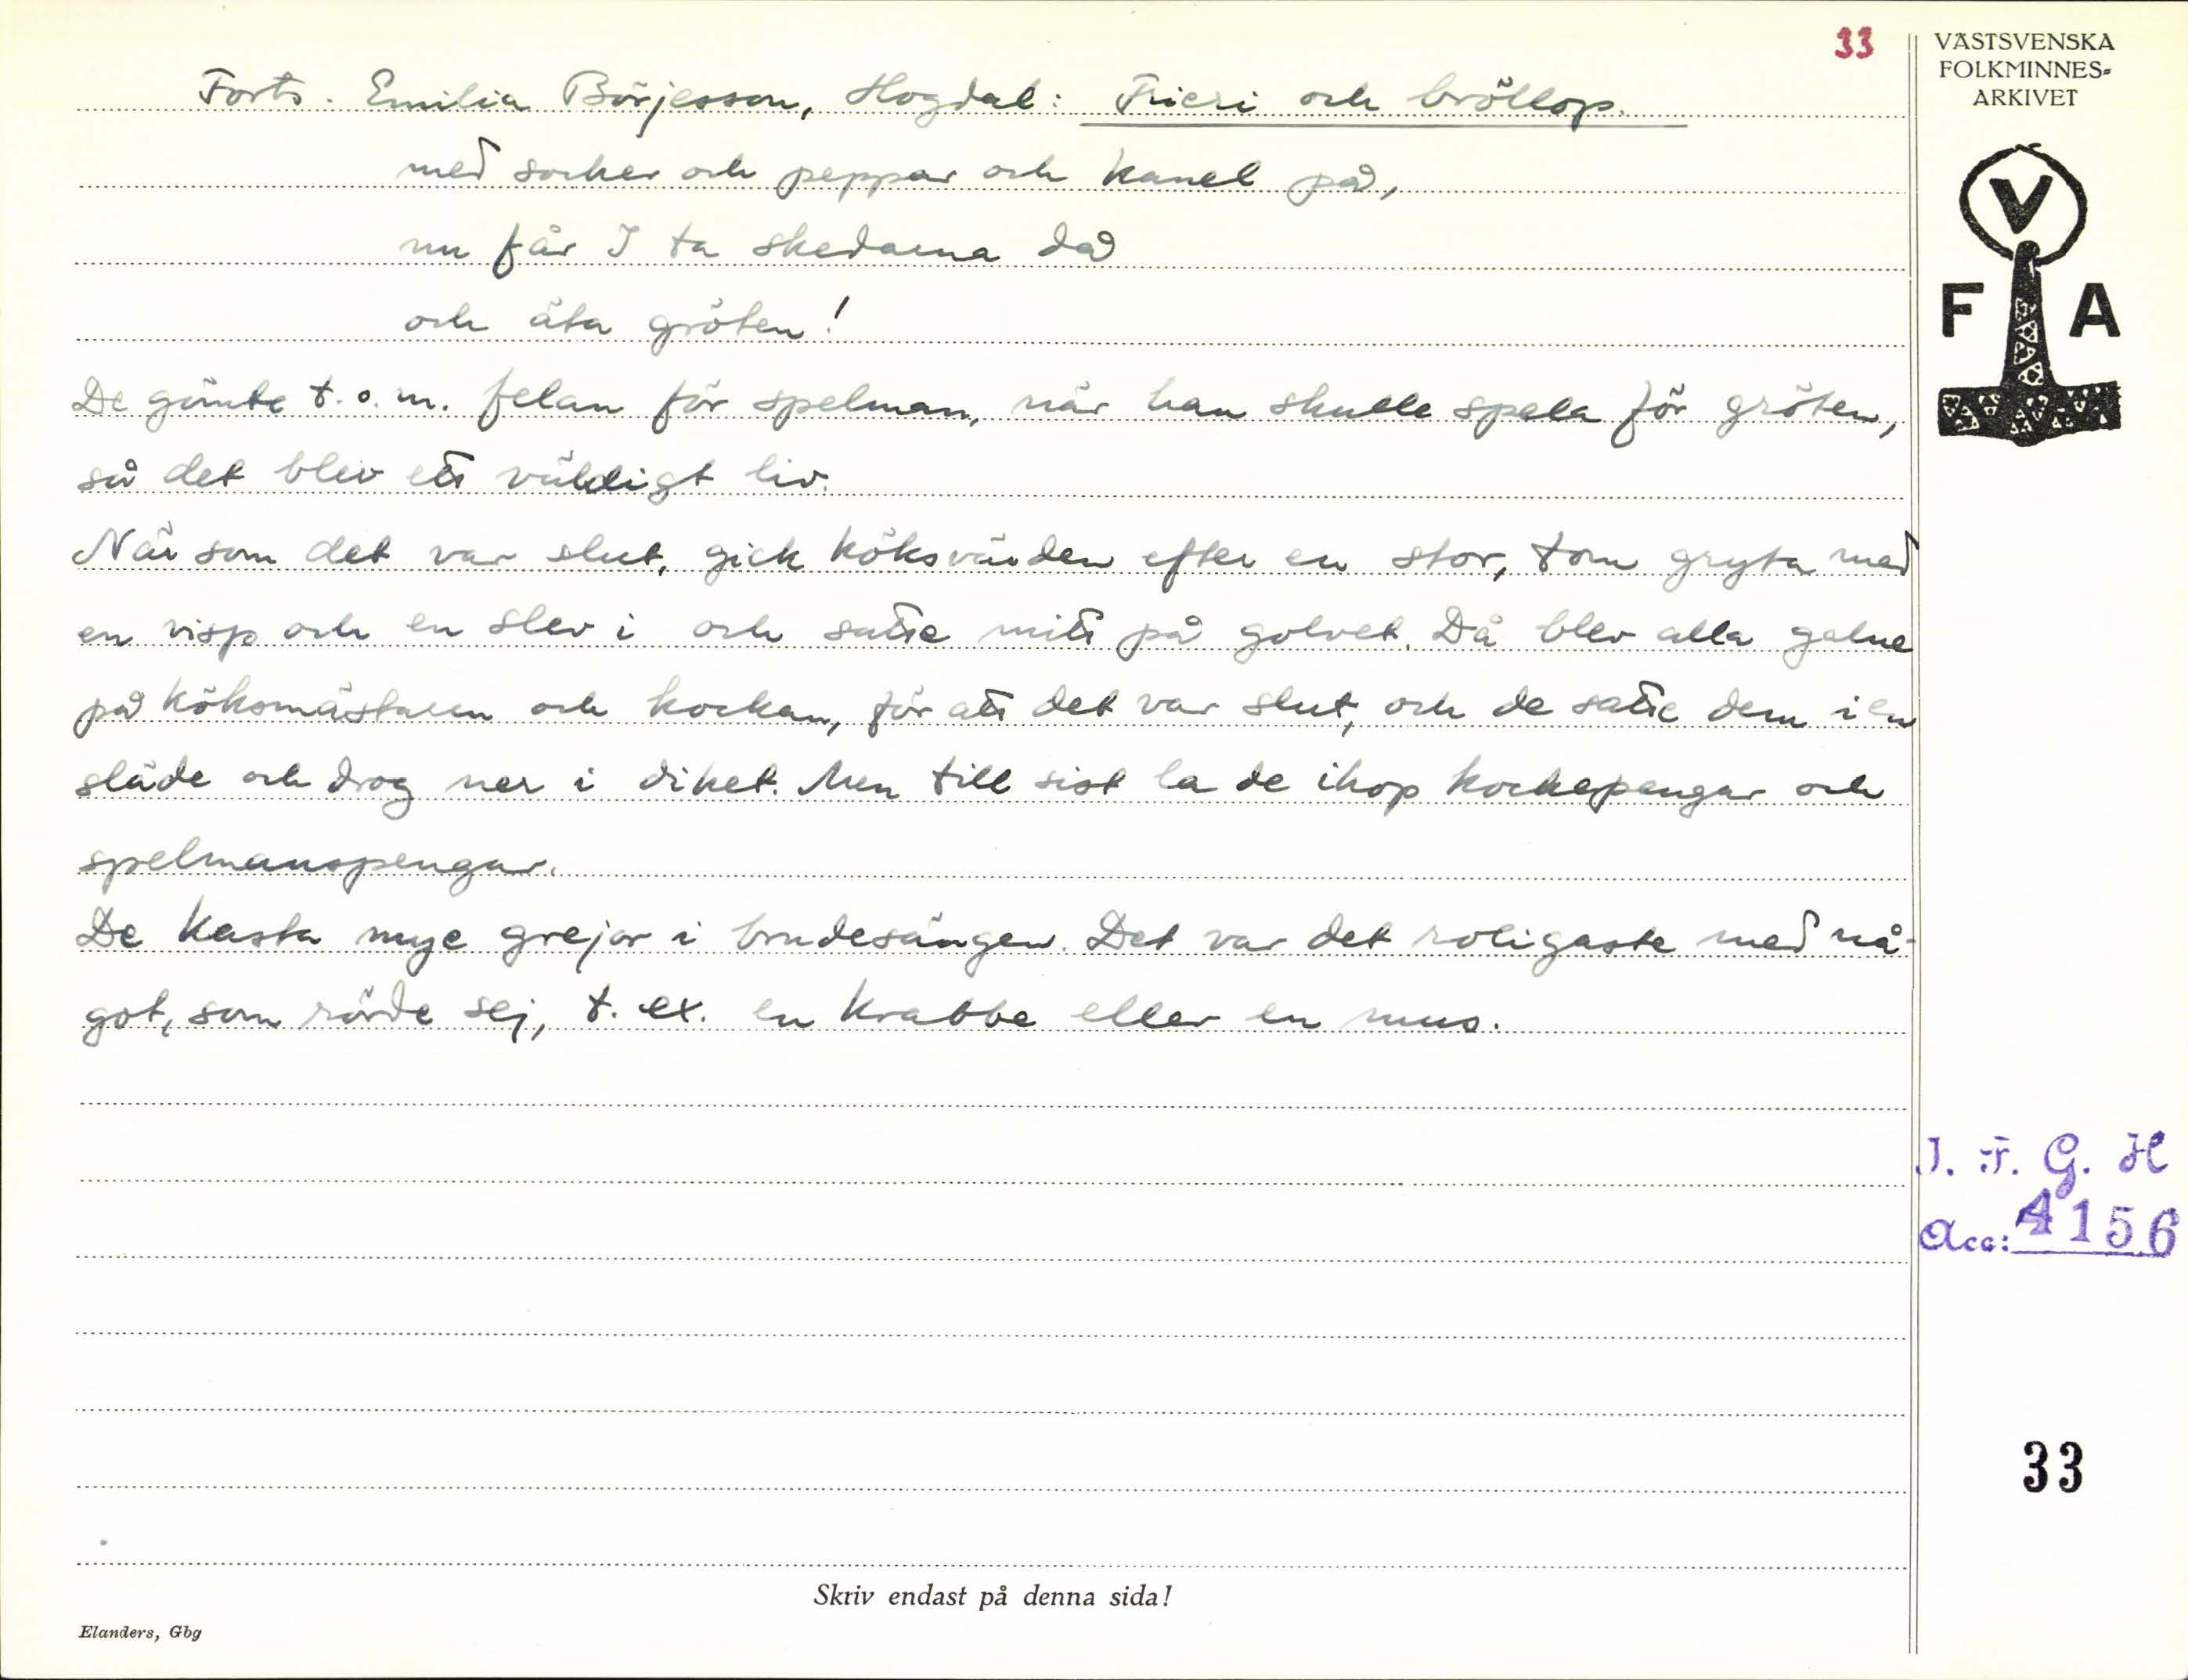 33
VÄSTSVENSKA
FOLKMINNES-
ARKIVET
Forts. Emilia Börjesson, Hogdal: Frieri och bröllop.
med socker och peppar och kanel på,
nu får I ta skedarna då
och äta gröten!
V
F A
De gömte t.o.m. felan för spelman, när han skulle spela för gröten,
så det blev ett väldigt liv.
När som det var slut, gick köksvärden efter en stor, tom gryta med
en visp och en slev i och satte mitt på golvet. Då blev alla galne
på köksmästaren och kockan, för att det var slut, och de satte dem i en
släde och drog ner i diket. Men till sist la de ihop kockepengar och
spelmanspengar.
De kasta mye grejor i brudesängen. Det var det roligaste med nå-
got, som rörde sej, t. ex. en krabbe eller en mus.
I. F. G. H
Acc: 4156
33
Skriv endast på denna sida!
Elanders, Gbg